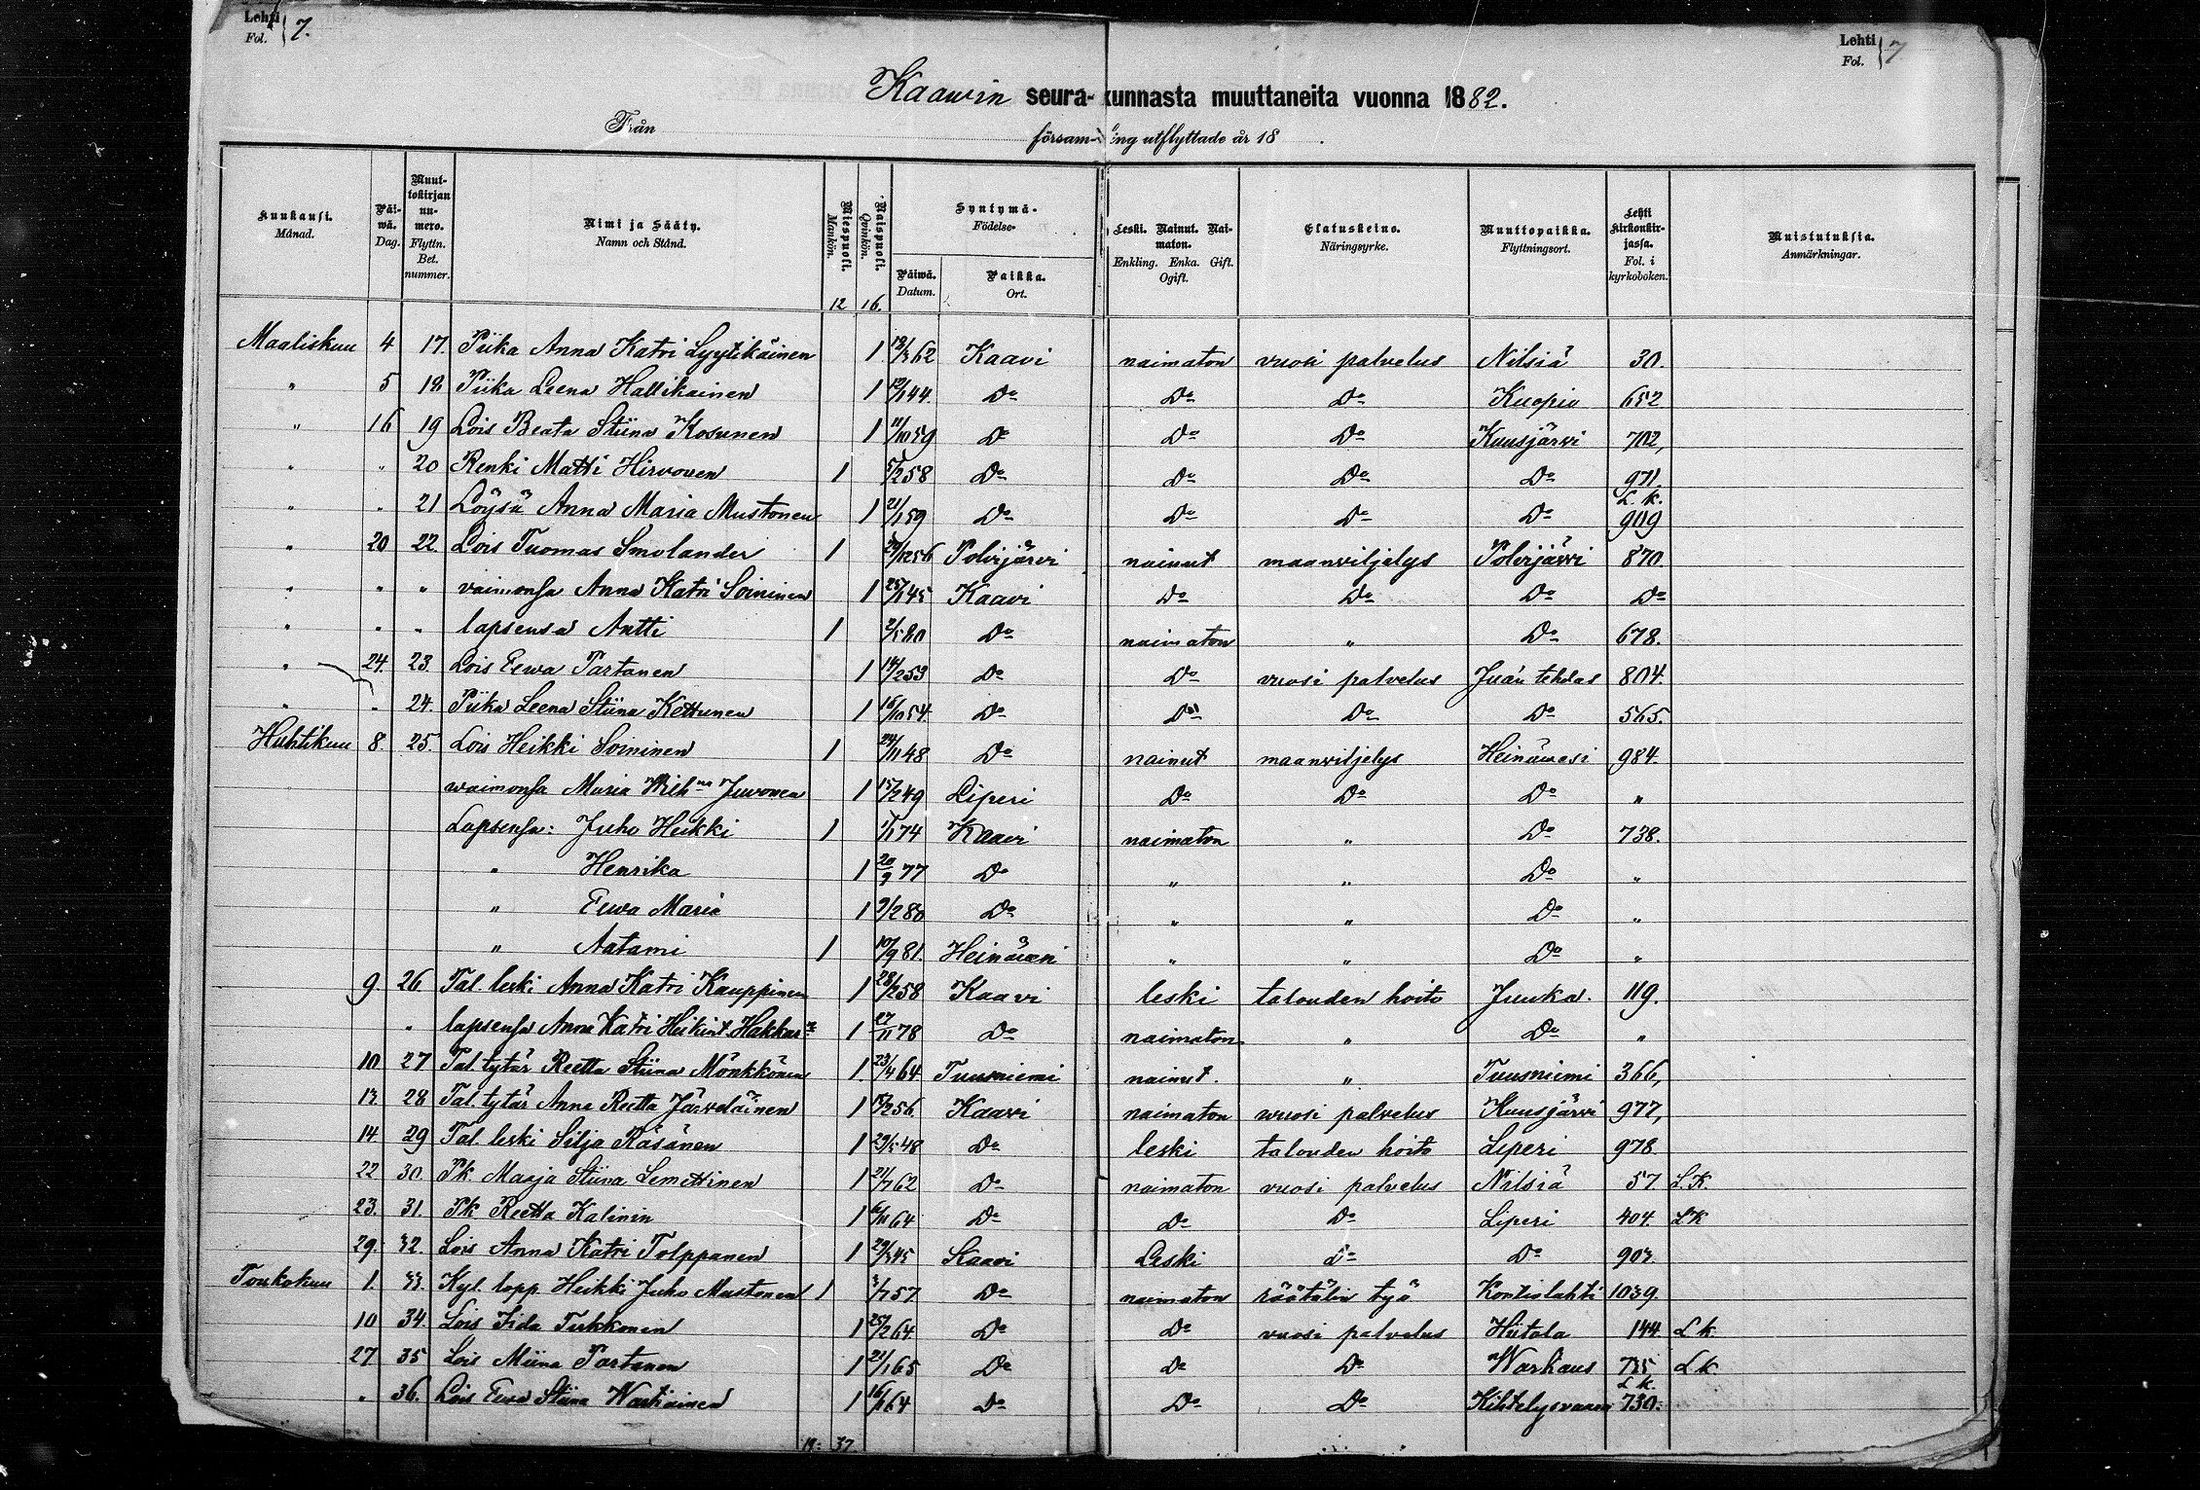 Lehti Fol. } 7.
Lehti Fol. } 7
Kaawin seurakunnasta muuttaneita vuonna 1882.
Från församling utflyttade år 18 .
Kuukausi. Månad. Päiwä. Dag. Muuttokirjan numero. Flyttn. Bet. nummer. Nimi ja Sääty. Namn och Stånd. Miespuoli. Mankön. Naispuoli. Qvinkön. Syntymä- Födelse- Päiwä. Datum. Paikka. Ort. Leski. Nainut. Naimaton. Enkling. Enka. Gift. Ogift. Elatuskeino. Näringsyrke. Muuttopaikka. Flyttningsort. Lehti kirkonkirjassa. Fol. i kyrkoboken. Muistutuksia. Anmärkningar.
12 16.
Maaliskuu 4 17. Piika Anna Katri Lyytikäinen 1 18/3 62 Kaavi naimaton vuosi palvelus Nilsiä 30.
" 5 18 Piika Leena Hallikainen 1 12/1 44. Do Do Do Kuopio 652
" 16 19 Lois Beata Stiina Kosunen 1 11/10 59 Do Do Do Kuusjärvi 702,
" " 20 Renki Matti Hirvonen 1 5/2 58 Do Do Do Do 971.
" " 21 Löysä Anna Maria Mustonen 1 21/1 59 Do Do Do Do L. k. 909
" 20 22 Lois Tuomas Smolander 1 /12 56 Polvijärvi nainut maanviljelys Polvijärvi 870.
" " " vaimonsa Anna Katri Soininen 1 25/1 45 Kaavi Do Do Do Do
" " " lapsensa Antti 1 2/5 80 Do naimaton " Do 678.
" 24. 23. Lois Eewa Partanen 1 14/2 53 Do Do vuosi palvelus Juan tehdas 804.
" " 24. Piika Leena Stiina Kettunen 1 16/10 54. Do Do Do Do 565.
Huhtikuu 8. 25. Lois Heikki Soininen 1 24/11 48 Do nainut maanviljelys Heinäwesi 984.
waimonsa Maria Wilhna Juvonen 1 15/2 49 Liperi Do Do Do "
Lapsensa: Juho Heikki 1 1/1 74 Kaavi naimaton " Do 738.
" Henrika 1 20/9 77 Do " " Do "
" Eewa Maria 1 9/2 80 Do " " Do "
" Aatami 1 10/9 81. Heinäwesi " " Do "
9. 26 Tal. leski Anna Katri Kauppinen 1 28/2 58 Kaavi leski talouden hoito Juuka. 119.
" lapsensa Anna Katri Heikint. Hakkar 1 27/11 78 Do naimaton " Do "
10 27 Tal. tytär Reetta Stiina Mönkkönen 1. 23/4 64 Tuusniemi nainut. " Tuusniemi 366,
13 28 Tal. tytär Anna Reetta Järveläinen 1 /2 56. Kaavi naimaton wuosi palvelus Kuusjärvi 977,
14 29 Tal. leski Silja Räsänen 1 29/5 48 Do leski talouden hoito Liperi 978.
22 30. Pk. Marja Stiina Lemettinen 1 21/7 62 Do naimaton vuosi palvelus Nilsiä 57. L.K.
23. 31. Pk. Reetta Kalinin 1 /11 64 Do Do Do Liperi 404. LK
29. 32. Lois Anna Katri Tolppanen 1 29/3 45 Kaavi Leski Do Do 903.
Toukokuu 1. 33. Kyl. lapp. Heikki Juho Mustonen 1 3/7 57 Do naimaton räätälin työ Kontiolahti 1039.
10 34. Lois Iida Turkkonen 1 25/2 64 Do Do vuosi palvelus Hiitola 144. L k.
27 35 Lois Miina Partanen 1 21/1 65 Do Do Do Warkaus 735 L k.
" 36. Lois Eewa Stiina Wartiainen 1 16/1 64 Do Do Do Kihtelysvaara L k. 730.
37